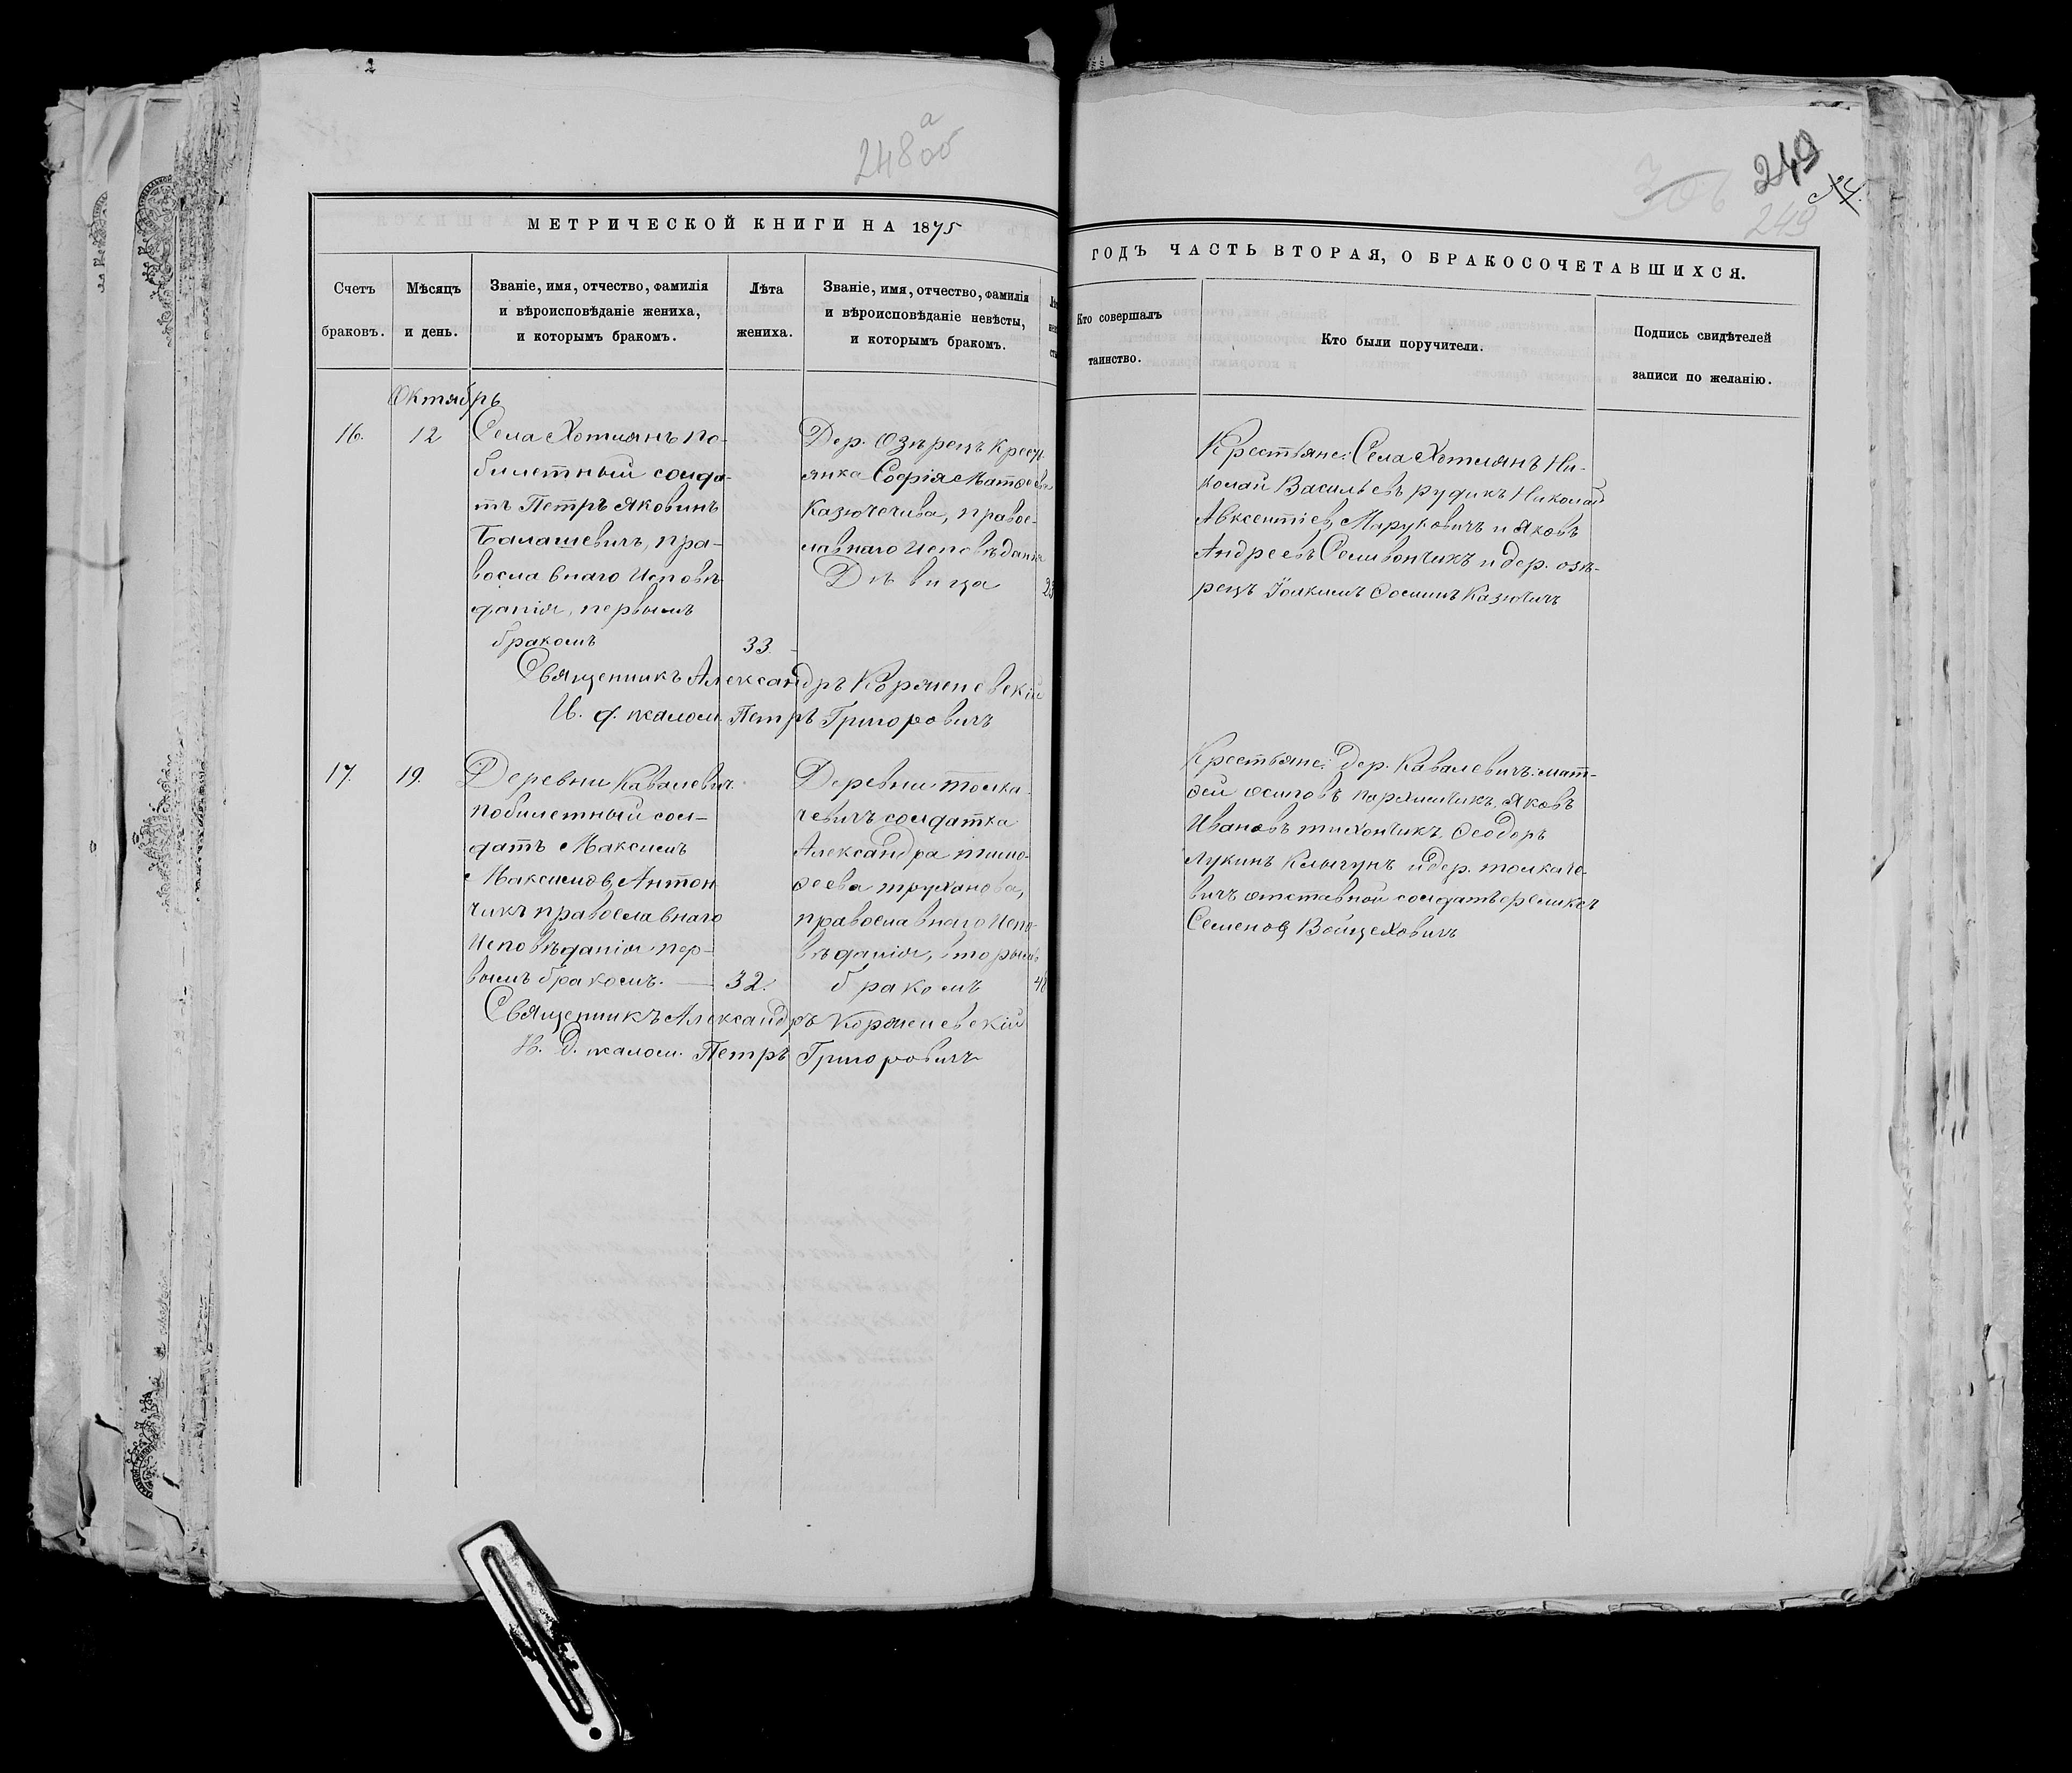 248 а об
249
249
МЕТРИЧЕСКОЙ КНИГИ НА 1875
ГОДЪ ЧАСТЬ ВТОРАЯ, О БРАКОСОЧЕТАВШИХСЯ.
Счетъ браковъ.
Мѣсяцъ и день.
Званіе, имя, отчество, фамилія
и вѣроисповѣданіе жениха,
и которымъ бракомъ.
Лѣта жениха.
Званіе, имя, отчество, фамилія
и вѣроисповѣданіе невѣсты,
и которымъ бракомъ.
Кто совершалъ
таинство.
Кто были поручители.
Подпись свидѣтелей
записи по желанію.
Октябрь
16.
12
Села Хотлянъ по-
билетный солда-
тъ Петръ Яковинъ
Балашевичъ, пра-
вославнаго Исповѣ-
данія, первымъ
бракомъ
33.
Дер. Озѣрецъ Крест-
янка Софія Матѳеева
Казючичива, правос-
лавнаго Исповѣданія
Дѣвица
23
Священникъ Александръ Корженевскій
И. д. псалом. Петръ Григоровичъ
Крестьяне: Села Хотлянъ Ни-
колай Васильевъ рудикъ Николай
Авксентіев, Маруковичъ и Яковъ
Андреевъ Селивончикъ и дер. озѣ-
рецъ Іоакимъ Ѳоминъ Казючичъ
17.
19.
Деревни Кавалевич.
побилетный сол-
датъ Максимъ
Максимов, Антон
чикъ православнаго
Исповѣданія пер-
вымъ бракомъ.
32.
Деревни толка-
чевичъ солдатка
Александра тимо-
ѳеева труханова,
православнаго Испо-
вѣданія, вторымъ
бракомъ
48
Священникъ Александръ Корженевскій
И. д. псалом. Петръ Григоровичъ
Крестьяне: дер. Кавалевичъ: мат-
ѳей осиповъ Яковъ
Ивановъ тихончикъ, Ѳеодоръ
Лукинъ и дер. толкаче-
вичъ отставной солдатъ
Семенов, Войцеховичъ